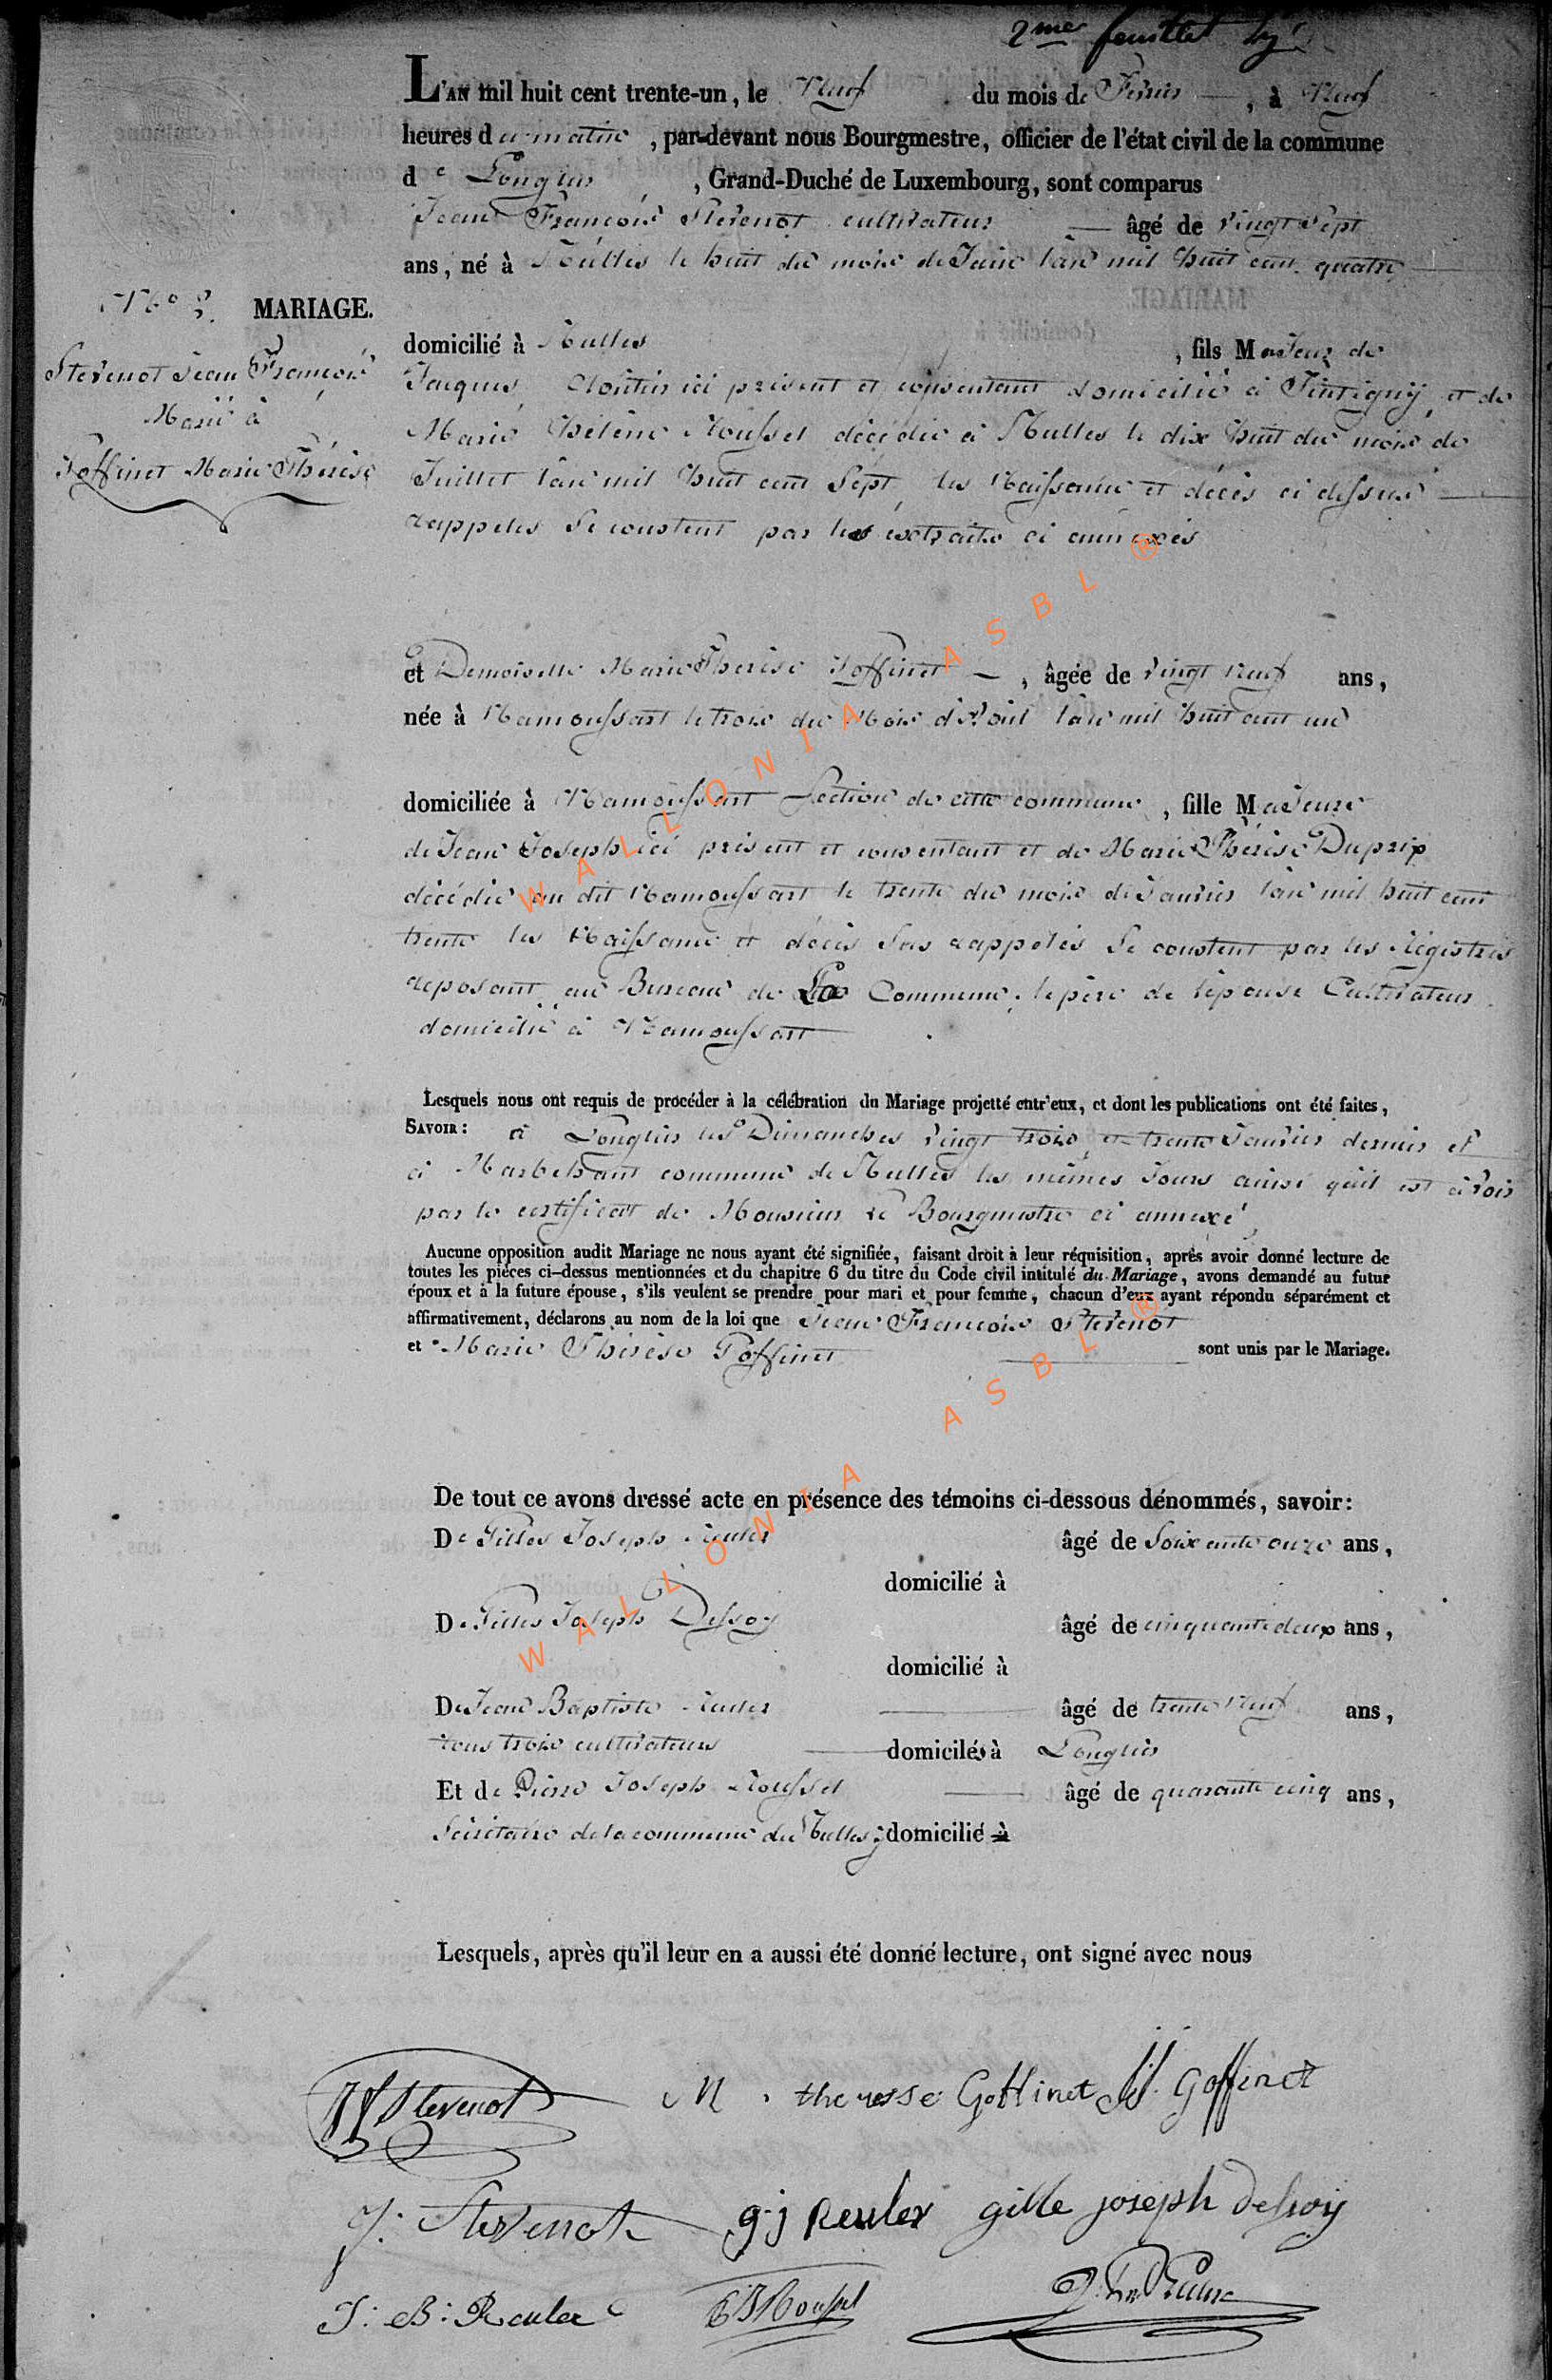 2me feuillet
L'AN mil huit cent trente-un, le Neuf du mois de Fevrier, à Neuf
heures du matin, par-devant nous Bourgmestre, officier de l'état civil de la commune
de Longlier, Grand-Duché de Luxembourg, sont comparus
Jean François Stevenot cultivateur âgé de vingt Sept
ans, né à le huit du mois de Juin l'an mil huit cent quatre
No MARIAGE.
Stevenot Jean François
Marié à
Goffinet Marie Thérèse
domicilié à , fils Majeur de
Jacques, ici présent et consentant domicilié à Tintigny, et de
Marie Hélène Rousset décédée à le dix huit du mois de
Juillet l'an mil huit cent Sept, les Naissance et décès ci dessus
rappelés se constent par les extraits ci annexés
et Demoiselle Marie Therèse Goffinet, âgée de vingt Neuf ans,
née à Namoussart le trois du Mois d'Août l'an mil huit cent un
domiciliée à Namoussart Section de cette commune, fille Majeure
de Jean Joseph ici présent et consentant et de Marie Thérèse Duprix
décédée au dit Namoussart le trente du mois de Janvier l'an mil huit cent
trente les Naissance et décès rappelés se constent par les Régistres
déposant au Bureau de La Commune, le père de l'épouse Cultivateur
domicilié à Namoussart
Lesquels nous ont requis de procéder à la célébration du Mariage projetté entr'eux, et dont les publications ont été faites,
SAVOIR: à Longlier les Dimanches vingt trois et trente Janvier dernier et
à Marbehant commune de les mêmes Jours ainsi qu'il est à voir
par le certificat de Monsieur le Bourgmestre ci annexé
Aucune opposition audit Mariage ne nous ayant été signifiée, faisant droit à leur réquisition, après avoir donné lecture de
toutes les pièces ci-dessus mentionnées et du chapitre 6 du titre du Code civil intitulé du Mariage, avons demandé au futur
époux et à la future épouse, s'ils veulent se prendre pour mari et pour femme, chacun d'eux ayant répondu séparément et
affirmativement, déclarons au nom de la loi que Jean François Stevenot
et Marie Thérèse Goffinet sont unis par le Mariage.
De tout ce avons dressé acte en présence des témoins ci-dessous dénommés, savoir:
De Gilles Joseph Reuler âgé de Soixante onze ans,
domicilié à
De Gilles Joseph Dessoy âgé de cinquante deux ans,
domicilié à
De Jean Baptiste Reuler âgé de trente Neuf ans,
tous trois cultivateurs domiciliés à Longlier
Et de Pierre Joseph Rousset âgé de quarante cinq ans,
Sécrétaire de la commune de domicilié à
Lesquels, après qu'il leur en a aussi été donné lecture, ont signé avec nous
JF Stevenot M. theresse Goffinet JJ. Goffinet
J: Stevenot g:j Reuler gille joseph delsoij
J: B: Reuler
WALLONIA ASBL ®
WALLONIA ASBL ®